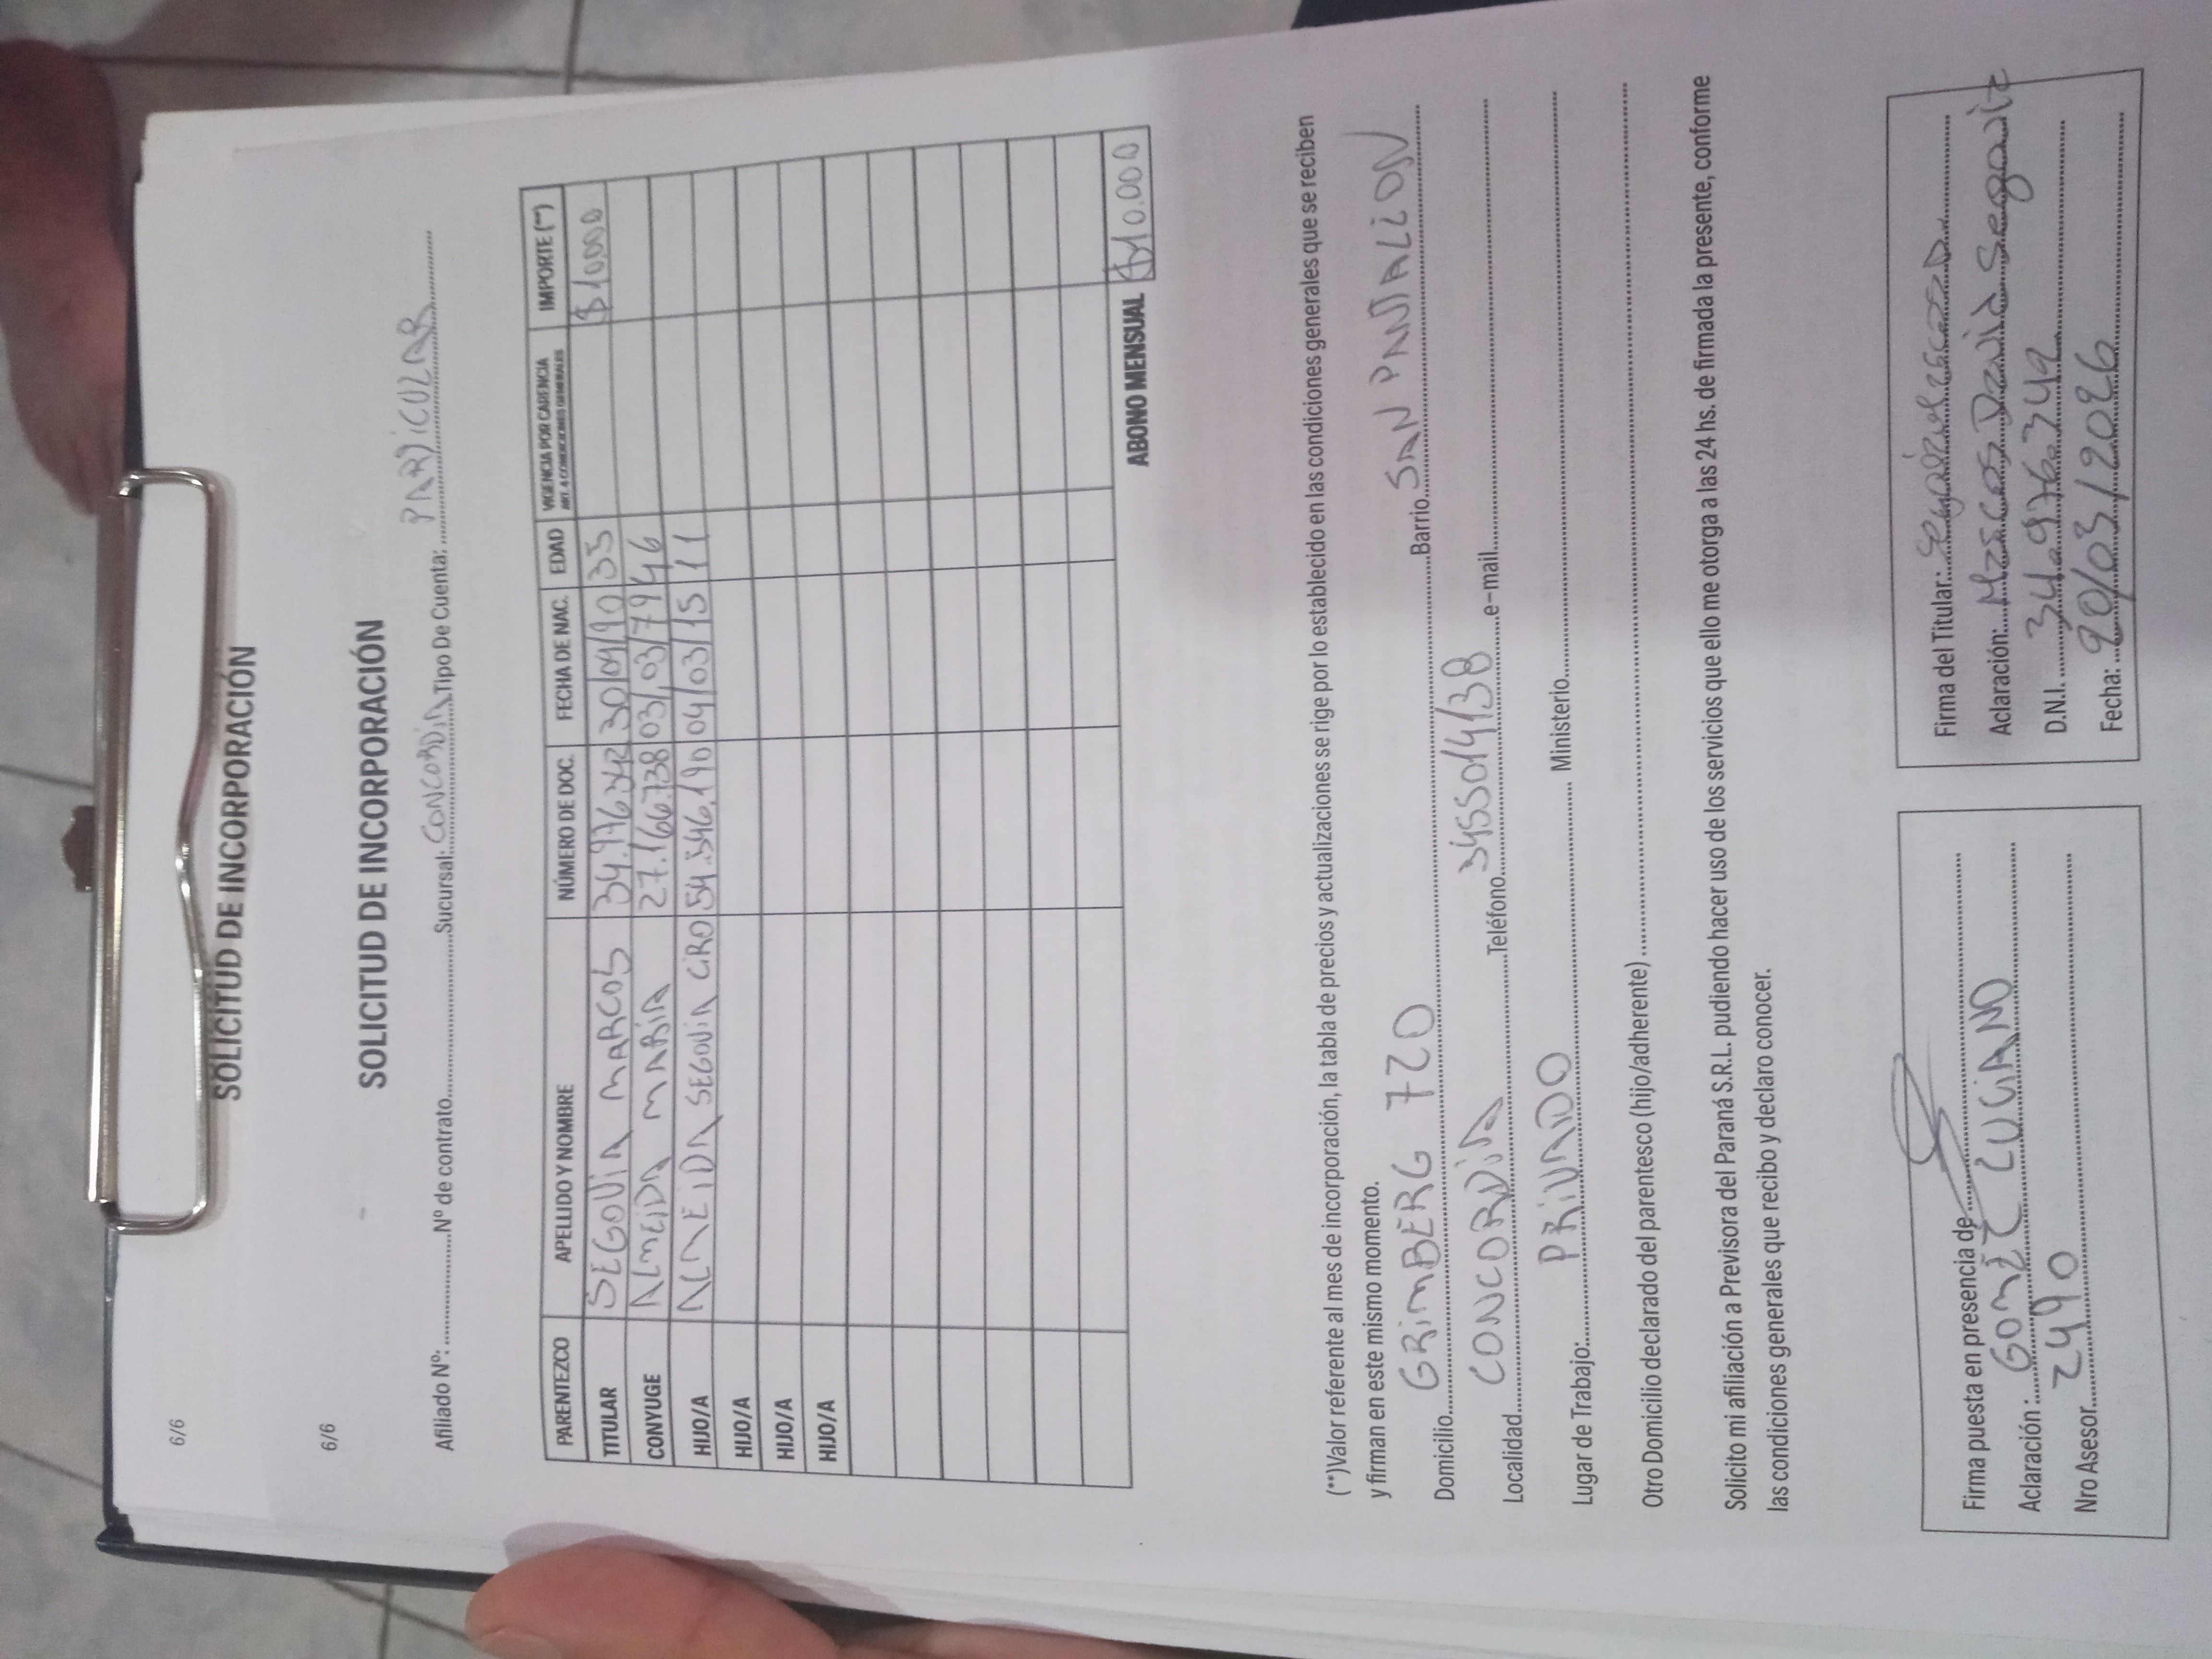 6/6
SOLICITUD DE INCORPORACIÓN
6/6
SOLICITUD DE INCORPORACIÓN
Afiliado Nº: Nº de contrato Sucursal: CONCORDIA Tipo De Cuenta: PARTICULAR
PARENTEZCO APELLIDO Y NOMBRE NÚMERO DE DOC. FECHA DE NAC. EDAD VIGENCIA POR CARENCIA ART. 4 CONDICIONES GENERALES IMPORTE (**)
TITULAR SEGOVIA MARCOS 34.976.342 30/04/90 35 $10.000
CONYUGE ALMEIDA MARIA 27.166.738 03/03/79 46
HIJO/A ALMEIDA SEGOVIA CIRO 54.546.190 04/03/15 11
HIJO/A
HIJO/A
HIJO/A
ABONO MENSUAL $10.000
(**)Valor referente al mes de incorporación, la tabla de precios y actualizaciones se rige por lo establecido en las condiciones generales que se reciben
y firman en este mismo momento.
Domicilio GRIMBERG 720 Barrio SAN PANTALION
Localidad CONCORDIA Teléfono 3455014138 e-mail
Lugar de Trabajo: PRIVADO Ministerio
Otro Domicilio declarado del parentesco (hijo/adherente)
Solicito mi afiliación a Previsora del Paraná S.R.L. pudiendo hacer uso de los servicios que ello me otorga a las 24 hs. de firmada la presente, conforme
las condiciones generales que recibo y declaro conocer.
Firma puesta en presencia de
Aclaración: GOMEZ LUCIANO
Nro Asesor 2490
Firma del Titular:
Aclaración: Marcos David Segovia
D.N.I. 34.976.342
Fecha: 20/03/2026